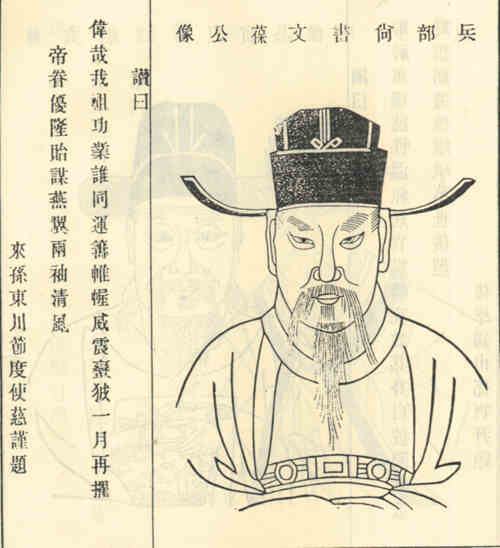 兵部尚書文葆公像
讚曰
偉哉我祖功業誰同運籌帷幄威震蠻狨一月再擢
帝眷優隆貽謀燕翼兩袖清風
來孫東川節度使慈謹題